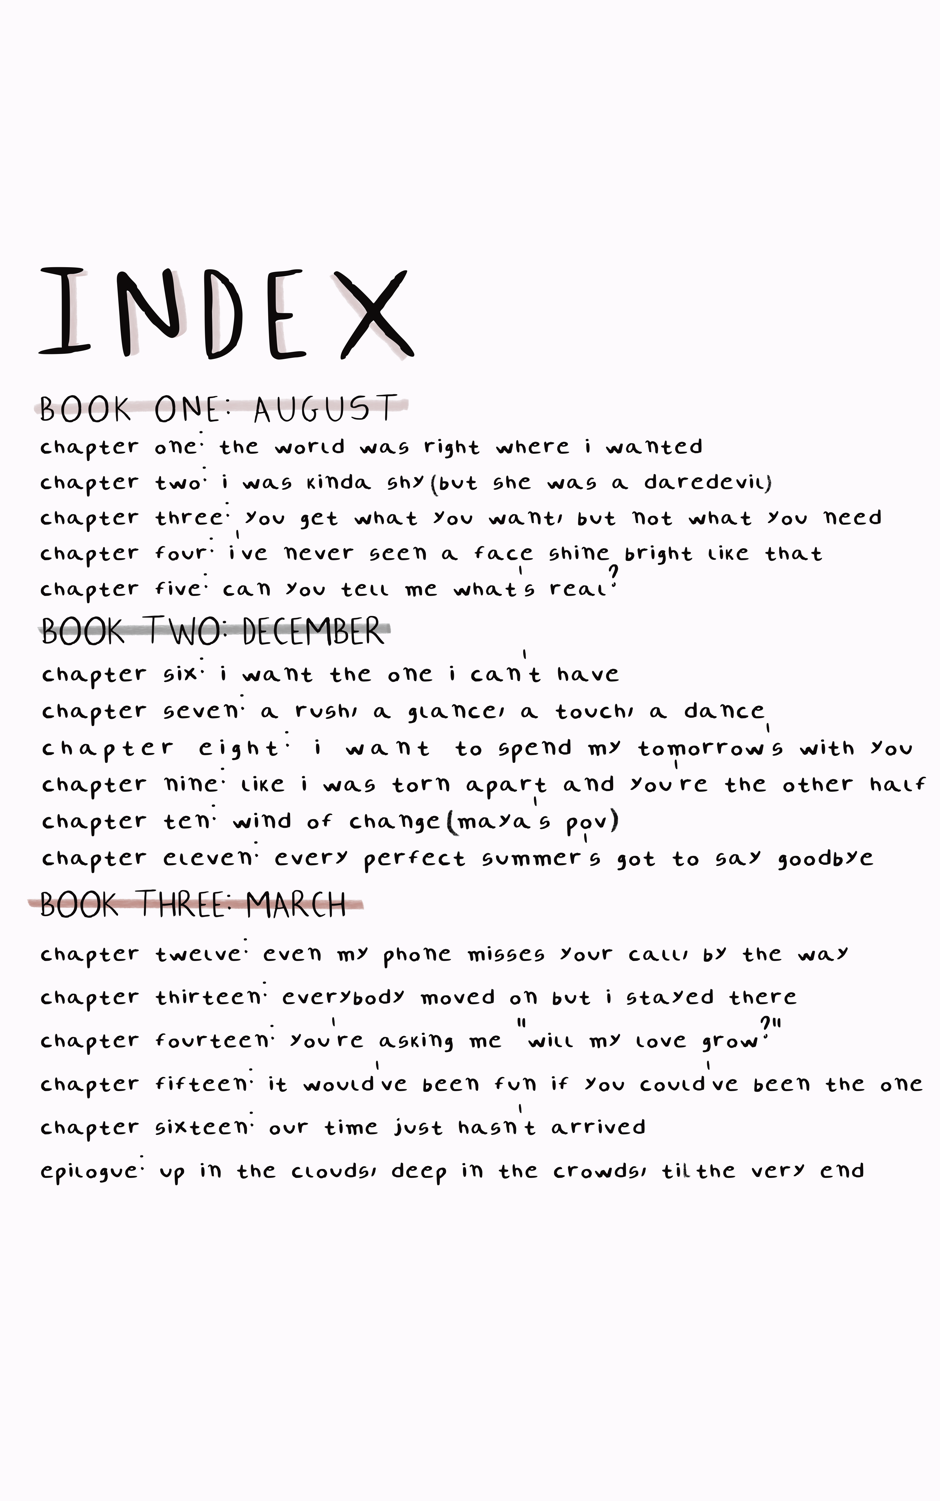 INDEX
BOOK ONE: AUGUST
chapter one: the world was right where i wanted
chapter two: i was kinda shy (but she was a daredevil)
chapter three: you get what you want, but not what you need
chapter four: i've never seen a face shine bright like that
chapter five: can you tell me what's real?
BOOK TWO: DECEMBER
chapter six: i want the one i can't have
chapter seven: a rush, a glance, a touch, a dance
chapter eight: i want to spend my tomorrow's with you
chapter nine: like i was torn apart and you're the other half
chapter ten: wind of change (maya's pov)
chapter eleven: every perfect summer's got to say goodbye
BOOK THREE: MARCH
chapter twelve: even my phone misses your call, by the way
chapter thirteen: everybody moved on but i stayed there
chapter fourteen: you're asking me "will my love grow?"
chapter fifteen: it would've been fun if you could've been the one
chapter sixteen: our time just hasn't arrived
epilogue: up in the clouds, deep in the crowds, til the very end